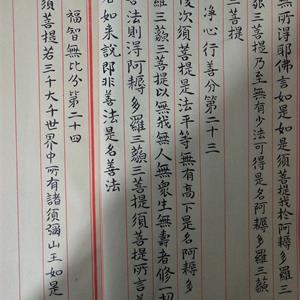 無所得耶佛言如是如是須菩提我於阿耨多羅
藐三菩提乃至無有少法可得是名阿耨多羅三藐
三菩提
淨心行善分第二十三
復次須菩提是法平等無有高下是名阿耨多
羅三藐三菩提以無我無人無眾生無壽者修一切
善法則得阿耨多羅三藐三菩提須菩提所言善
如來說即非善法是名善法
福智無比分第二十四
須菩提若三千大千世界中所有諸須彌山王如是